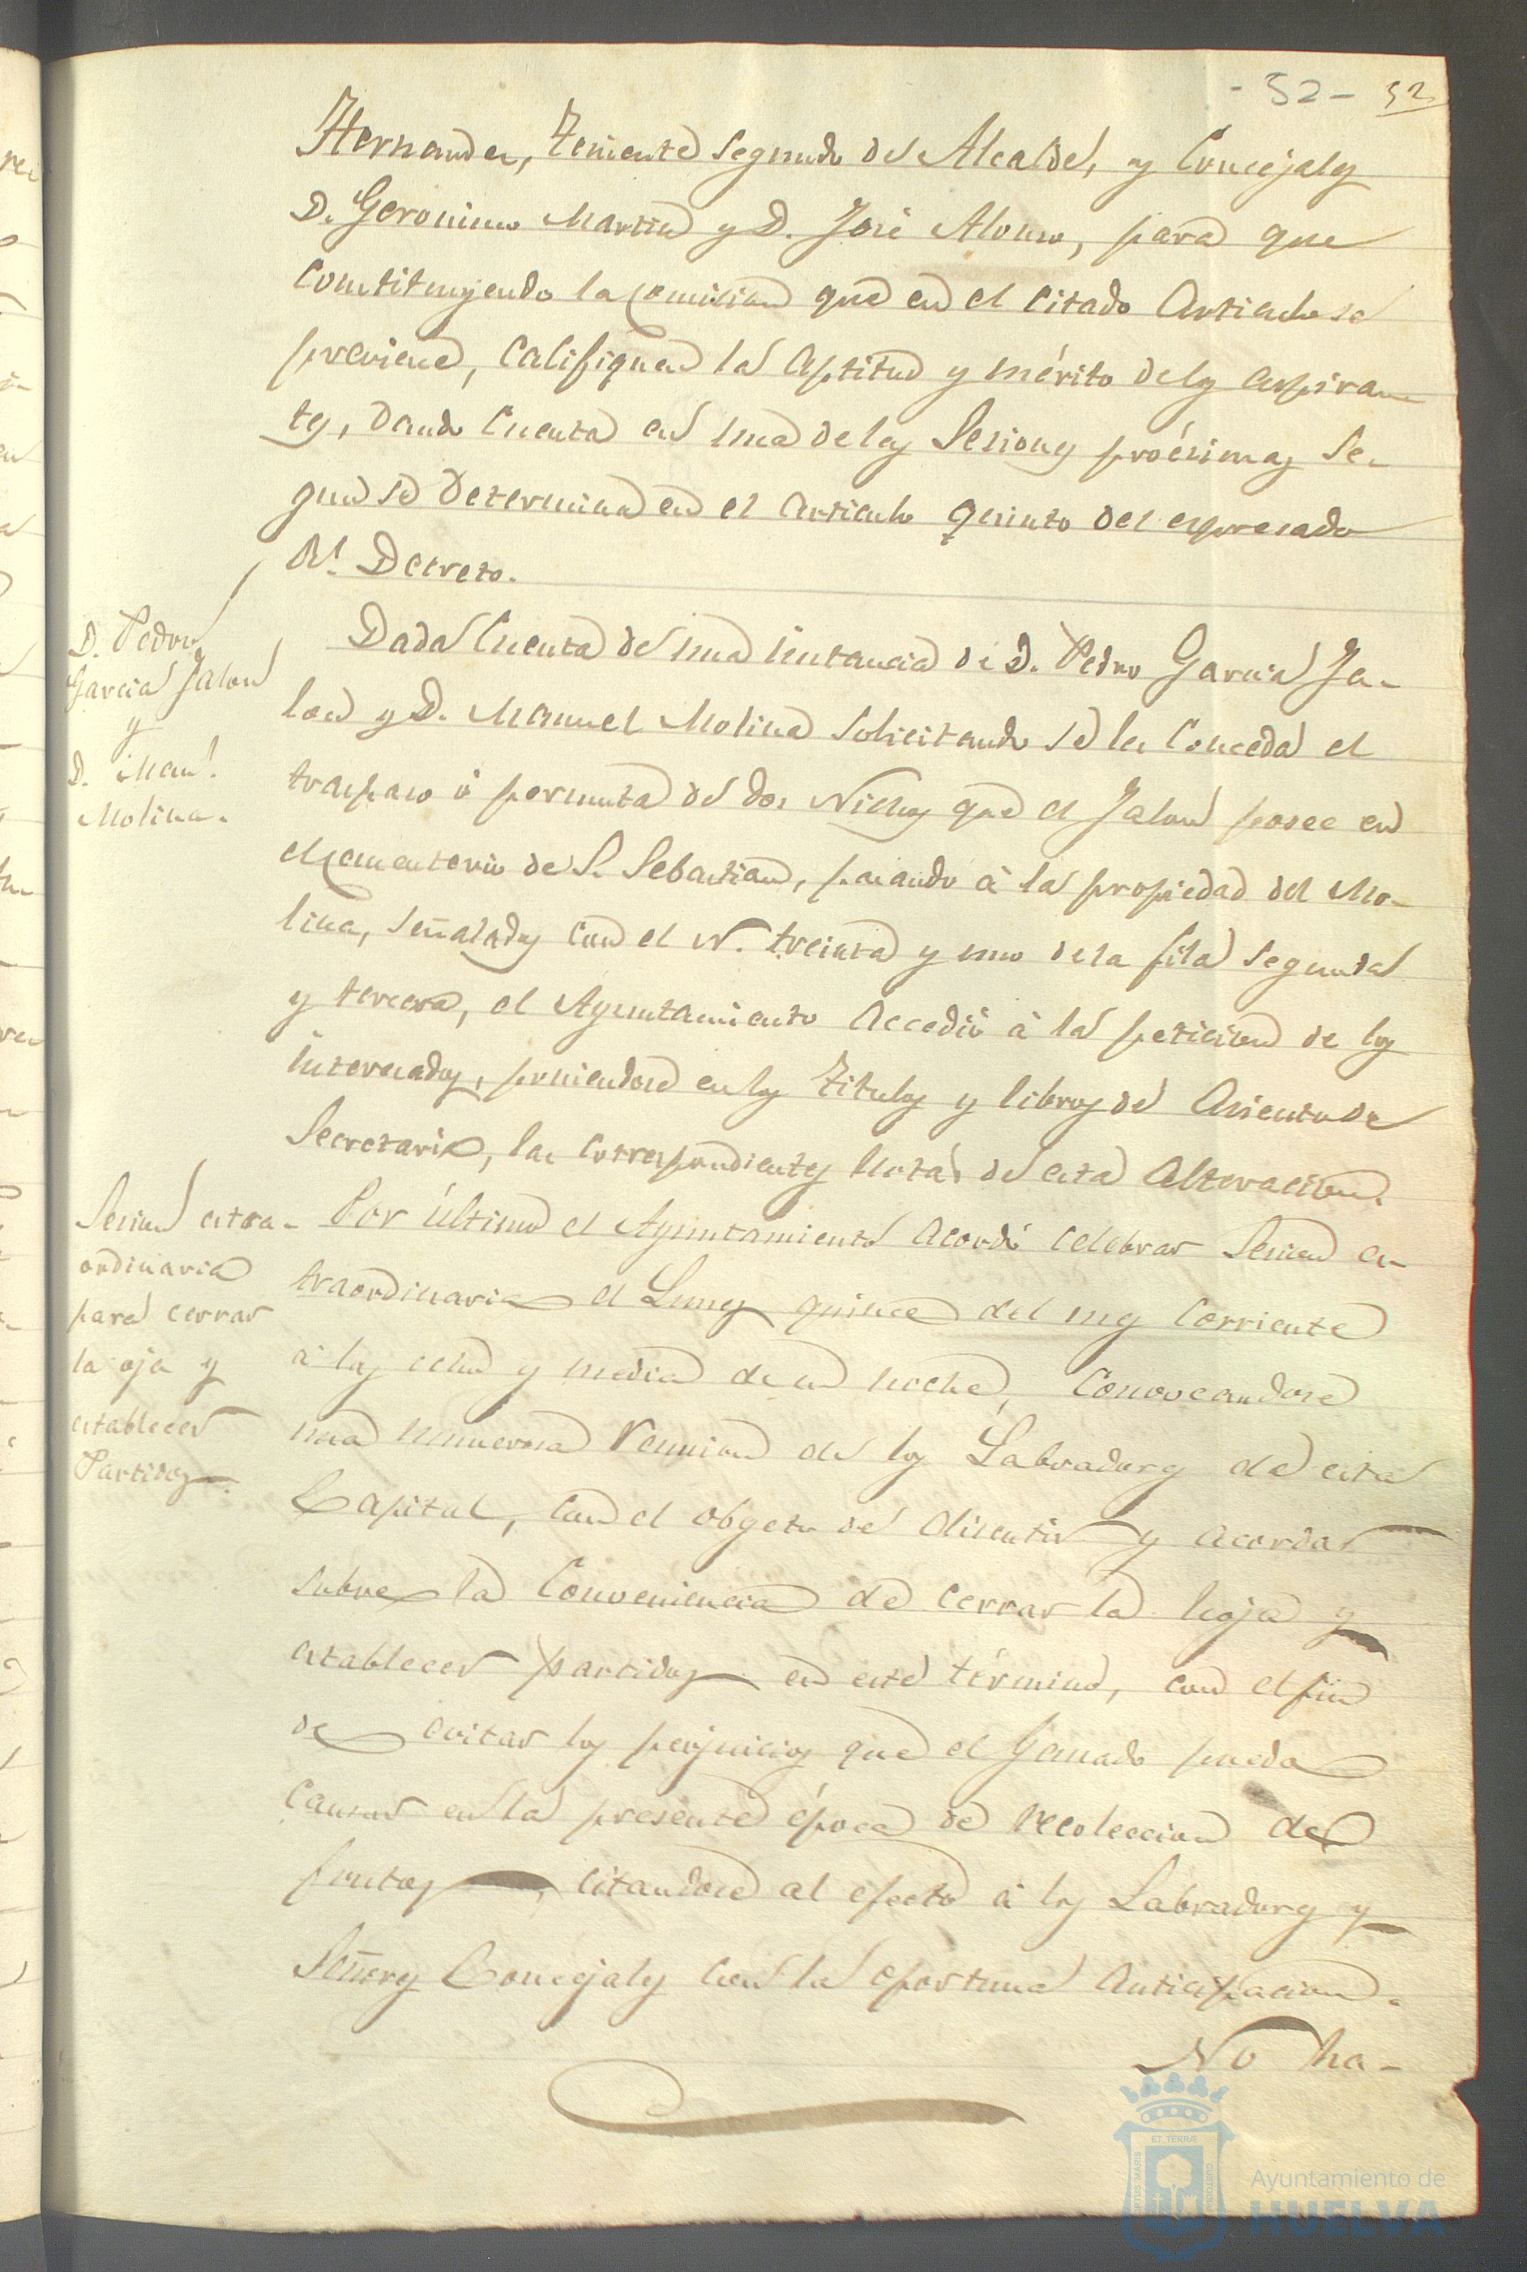 - 52 - 52
Hernandez, Teniente segundo de Alcalde, y Concejales
D. Geronimo Martin y D. José Alonso, para que
constituyendo la comision que en el citado Articulo se
previene, califiquen la aptitud y mérito de los aspiran-
tes, dando cuenta en una de las Sesiones proésimas se-
gun se determina en el articulo quinto del espresado
Rl. Decreto.
D. Pedro
Garcia Jalon
y
D. Manl.
Molina.
Dada cuenta de una instancia de D. Pedro Garcia Ja-
lon y D. Manuel Molina solicitando se les conceda el
traspaso ó permuta de dos Nichos que el Jalon posee en
el cementerio de S. Sebastian, pasando á la propiedad del Mo-
lina, señalados con el N. treinta y uno de la fila segunda
y tercera, el Ayuntamiento accedió á la peticion de los
interesados, poniendose en los titulos y libros de asiento de
Secretaria, las correspondientes notas de esta alteracion.
Sesion estra-
ordinaria
para cerrar
la oja y
establecer
Partidos.
Por último el Ayuntamiento acordó celebrar Sesion es-
traordinaria el Lunes quince del mes corriente
á las ocho y media de su noche, convocandose
una numerosa reunion de los Labradores de esta
Capital, con el objeto de discutir y acordar
sobre la conveniencia de cerrar la hoja y
establecer partidos en este término, con el fin
de evitar los perjuicios que el ganado pueda
causar en la presente época de recoleccion de
frutos, citandose al efecto á los Labradores y
Señores Concejales con la oportuna anticipacion.
No ha-
ET TERRÆ
PORTUS MARIS
CUSTODIA
Ayuntamiento de
HUELVA